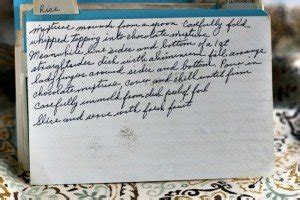 Rice
mixture mounds from a spoon Carefully fold
whipped topping into chocolate mixture
Meanwhile line sides and bottom of a 1 qt
straight sides dish with aluminum foil arrange
lady fingers around sides and bottom. Pour in
chocolate mixture, cover and chill until firm
Carefully unmold from dish peel of foil
Slice and serve with fresh fruit